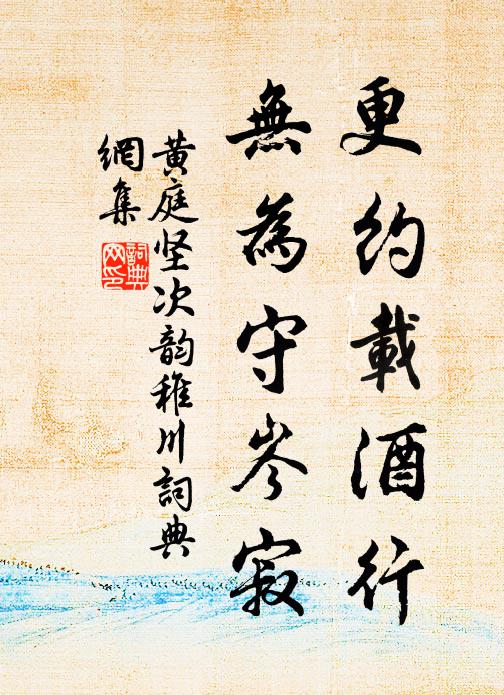 更約載酒行
無為守岑寂
黄庭坚次韵稚川詞典
網集
詞典
网印